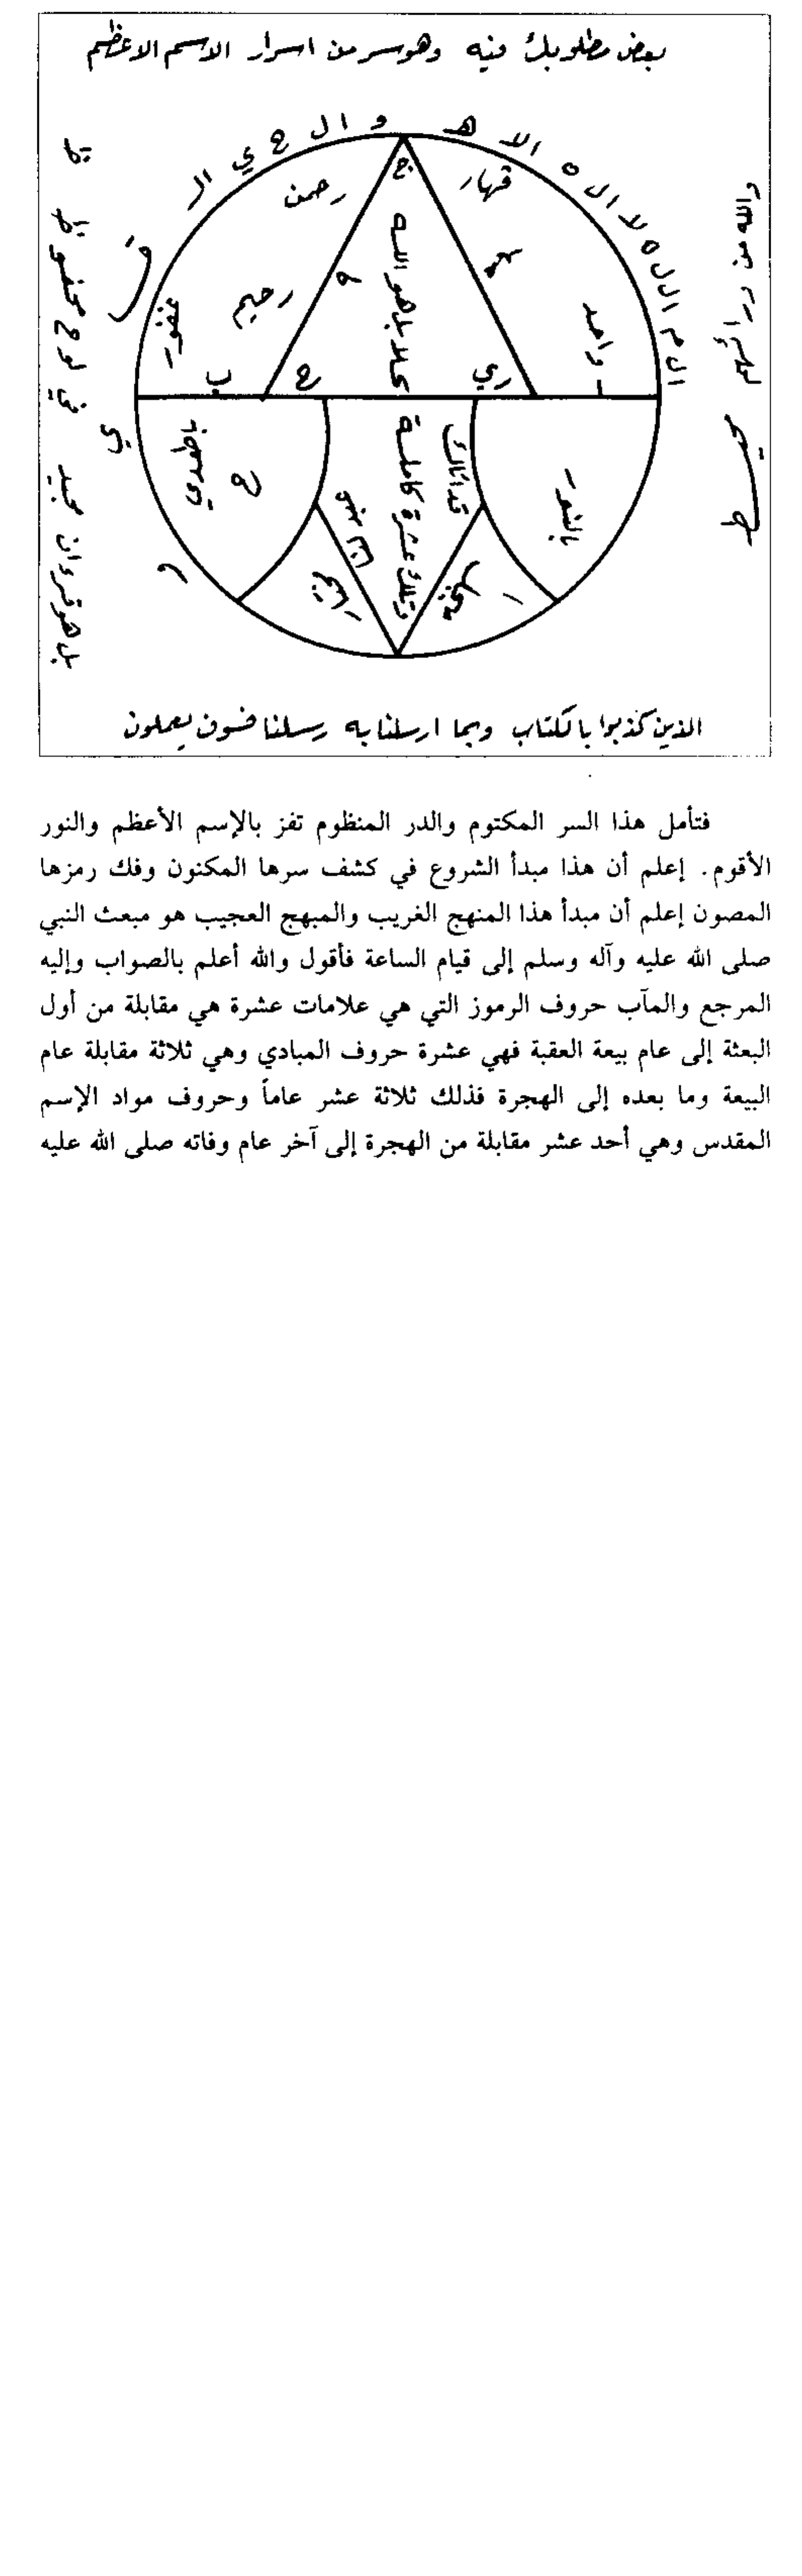 بعض مطلوبك فيه وهو سر من اسرار الاسم الاعظم
و ال ح ي ال ق
ال م ال ل ه لا ال ه الا ه
قهار
ج
رحمن
رحيم
واحد
كلا بل هو الله
وتلك عشرة كاملة
بالنور
والله من ورائهم
بل هو قرءان مجيد في لوح محفوظ ظ
الذين كذبوا بالكتاب وبما ارسلنا به رسلنا فسوف يعملون
فتأمل هذا السر المكتوم والدر المنظوم تفز بالإسم الأعظم والنور
الأقوم. إعلم أن هذا مبدأ الشروع في كشف سرها المكنون وفك رمزها
المصون إعلم أن مبدأ هذا المنهج الغريب والمبهج العجيب هو مبعث النبي
صلى الله عليه وآله وسلم إلى قيام الساعة فأقول والله أعلم بالصواب وإليه
المرجع والمآب حروف الرموز التي هي علامات عشرة هي مقابلة من أول
البعثة إلى عام بيعة العقبة فهي عشرة حروف المبادي وهي ثلاثة مقابلة عام
البيعة وما بعده إلى الهجرة فذلك ثلاثة عشر عاماً وحروف مواد الإسم
المقدس وهي أحد عشر مقابلة من الهجرة إلى آخر عام وفاته صلى الله عليه